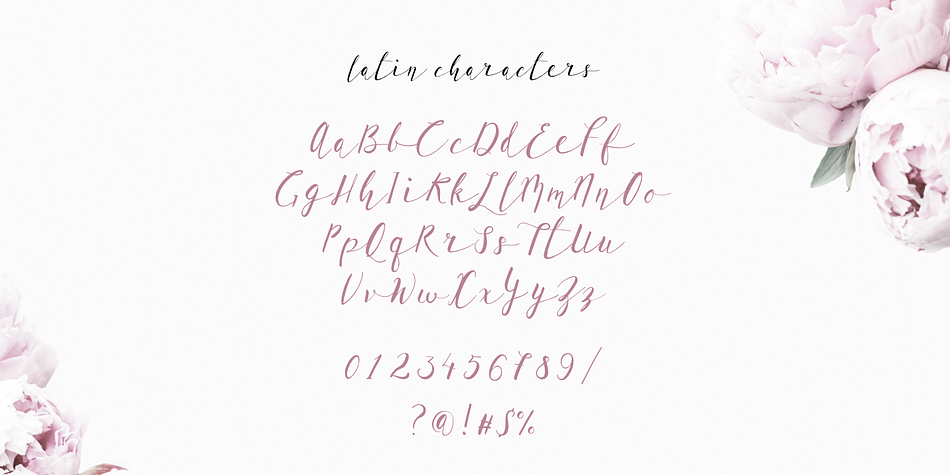 latin characters
AaBbCcDdEeFf
GgHhIiKkLlMmNnOo
PpQqRrSsTtUu
VvWwXxYyZz
0123456789/
?@!#$%